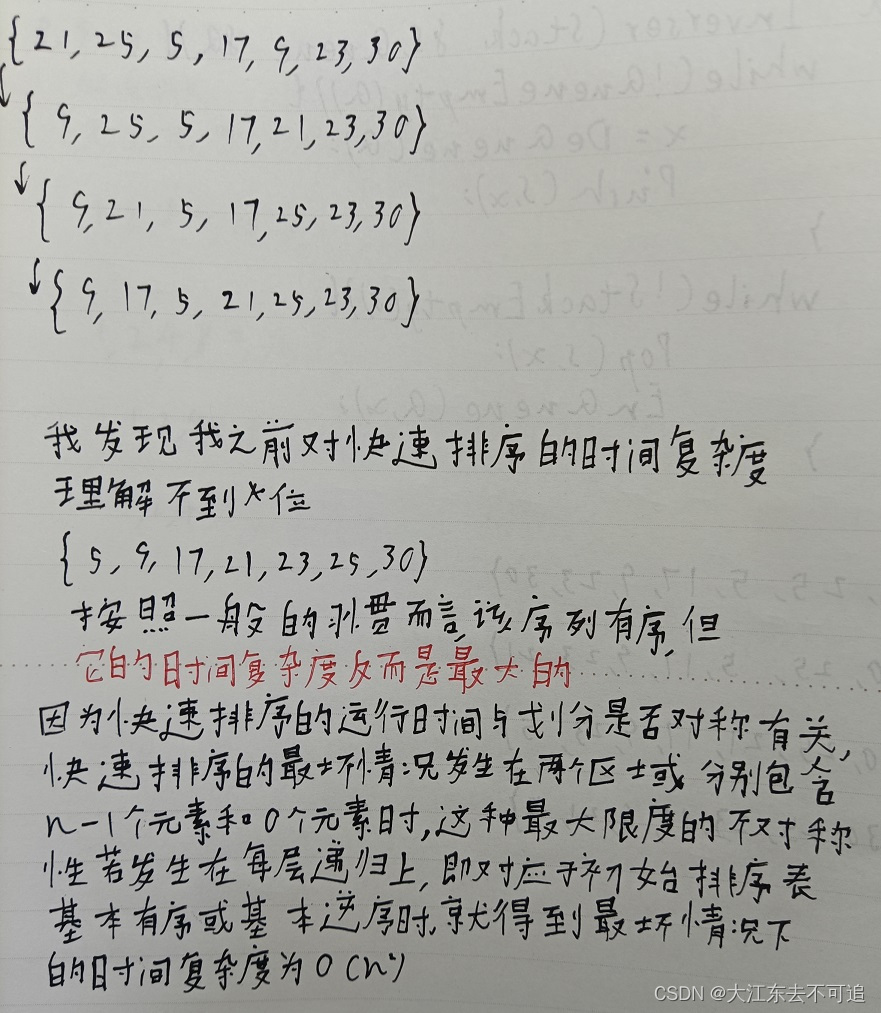 {21, 25, 5, 17, 9, 23, 30}
↓{9, 25, 5, 17, 21, 23, 30}
↓{9, 21, 5, 17, 25, 23, 30}
↓{9, 17, 5, 21, 25, 23, 30}
我发现我之前对快速排序的时间复杂度
理解不到位
{5, 9, 17, 21, 23, 25, 30}
按照一般的习惯而言,该序列有序,但
它的时间复杂度反而是最大的
因为快速排序的运行时间与划分是否对称有关,
快速排序的最坏情况发生在两个区域分别包含
n-1个元素和0个元素时,这种最大限度的不对称
性若发生在每层递归上,即对应于初始排序表
基本有序或基本逆序时,就得到最坏情况下
的时间复杂度为O(n²)
CSDN @大江东去不可追